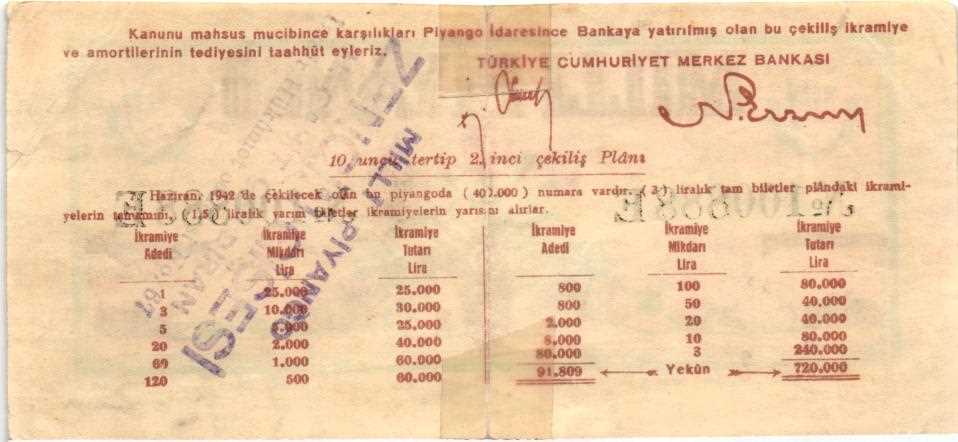 Kanunu mahsus mucibince karşılıkları Piyango İdaresince Bankaya yatırılmış olan bu çekiliş ikramiye
ve amortilerinin tediyesini taahhüt eyleriz.
TÜRKİYE CUMHURİYET MERKEZ BANKASI
10 uncu tertip 2. inci çekiliş Plânı
Haziran 1942 de çekilecek olan bu piyangoda (400.000) numara vardır. (3) liralık tam biletler plândaki ikrami-
yelerin tamamını, (1,5) liralık yarım biletler ikramiyelerin yarısını alırlar.
İkramiye Adedi İkramiye Mikdarı Lira İkramiye Tutarı Lira
1 25.000 25.000
3 10.000 30.000
5 25.000
20 2.000 40.000
60 1.000 60.000
120 500 60.000
İkramiye Adedi İkramiye Mikdarı Lira İkramiye Tutarı Lira
800 100 80.000
800 50 40.000
2.000 20 40.000
8.000 10 80.000
80.000 3 240.000
91.809 Yekûn 720.000
MİLLİ PİYANGO